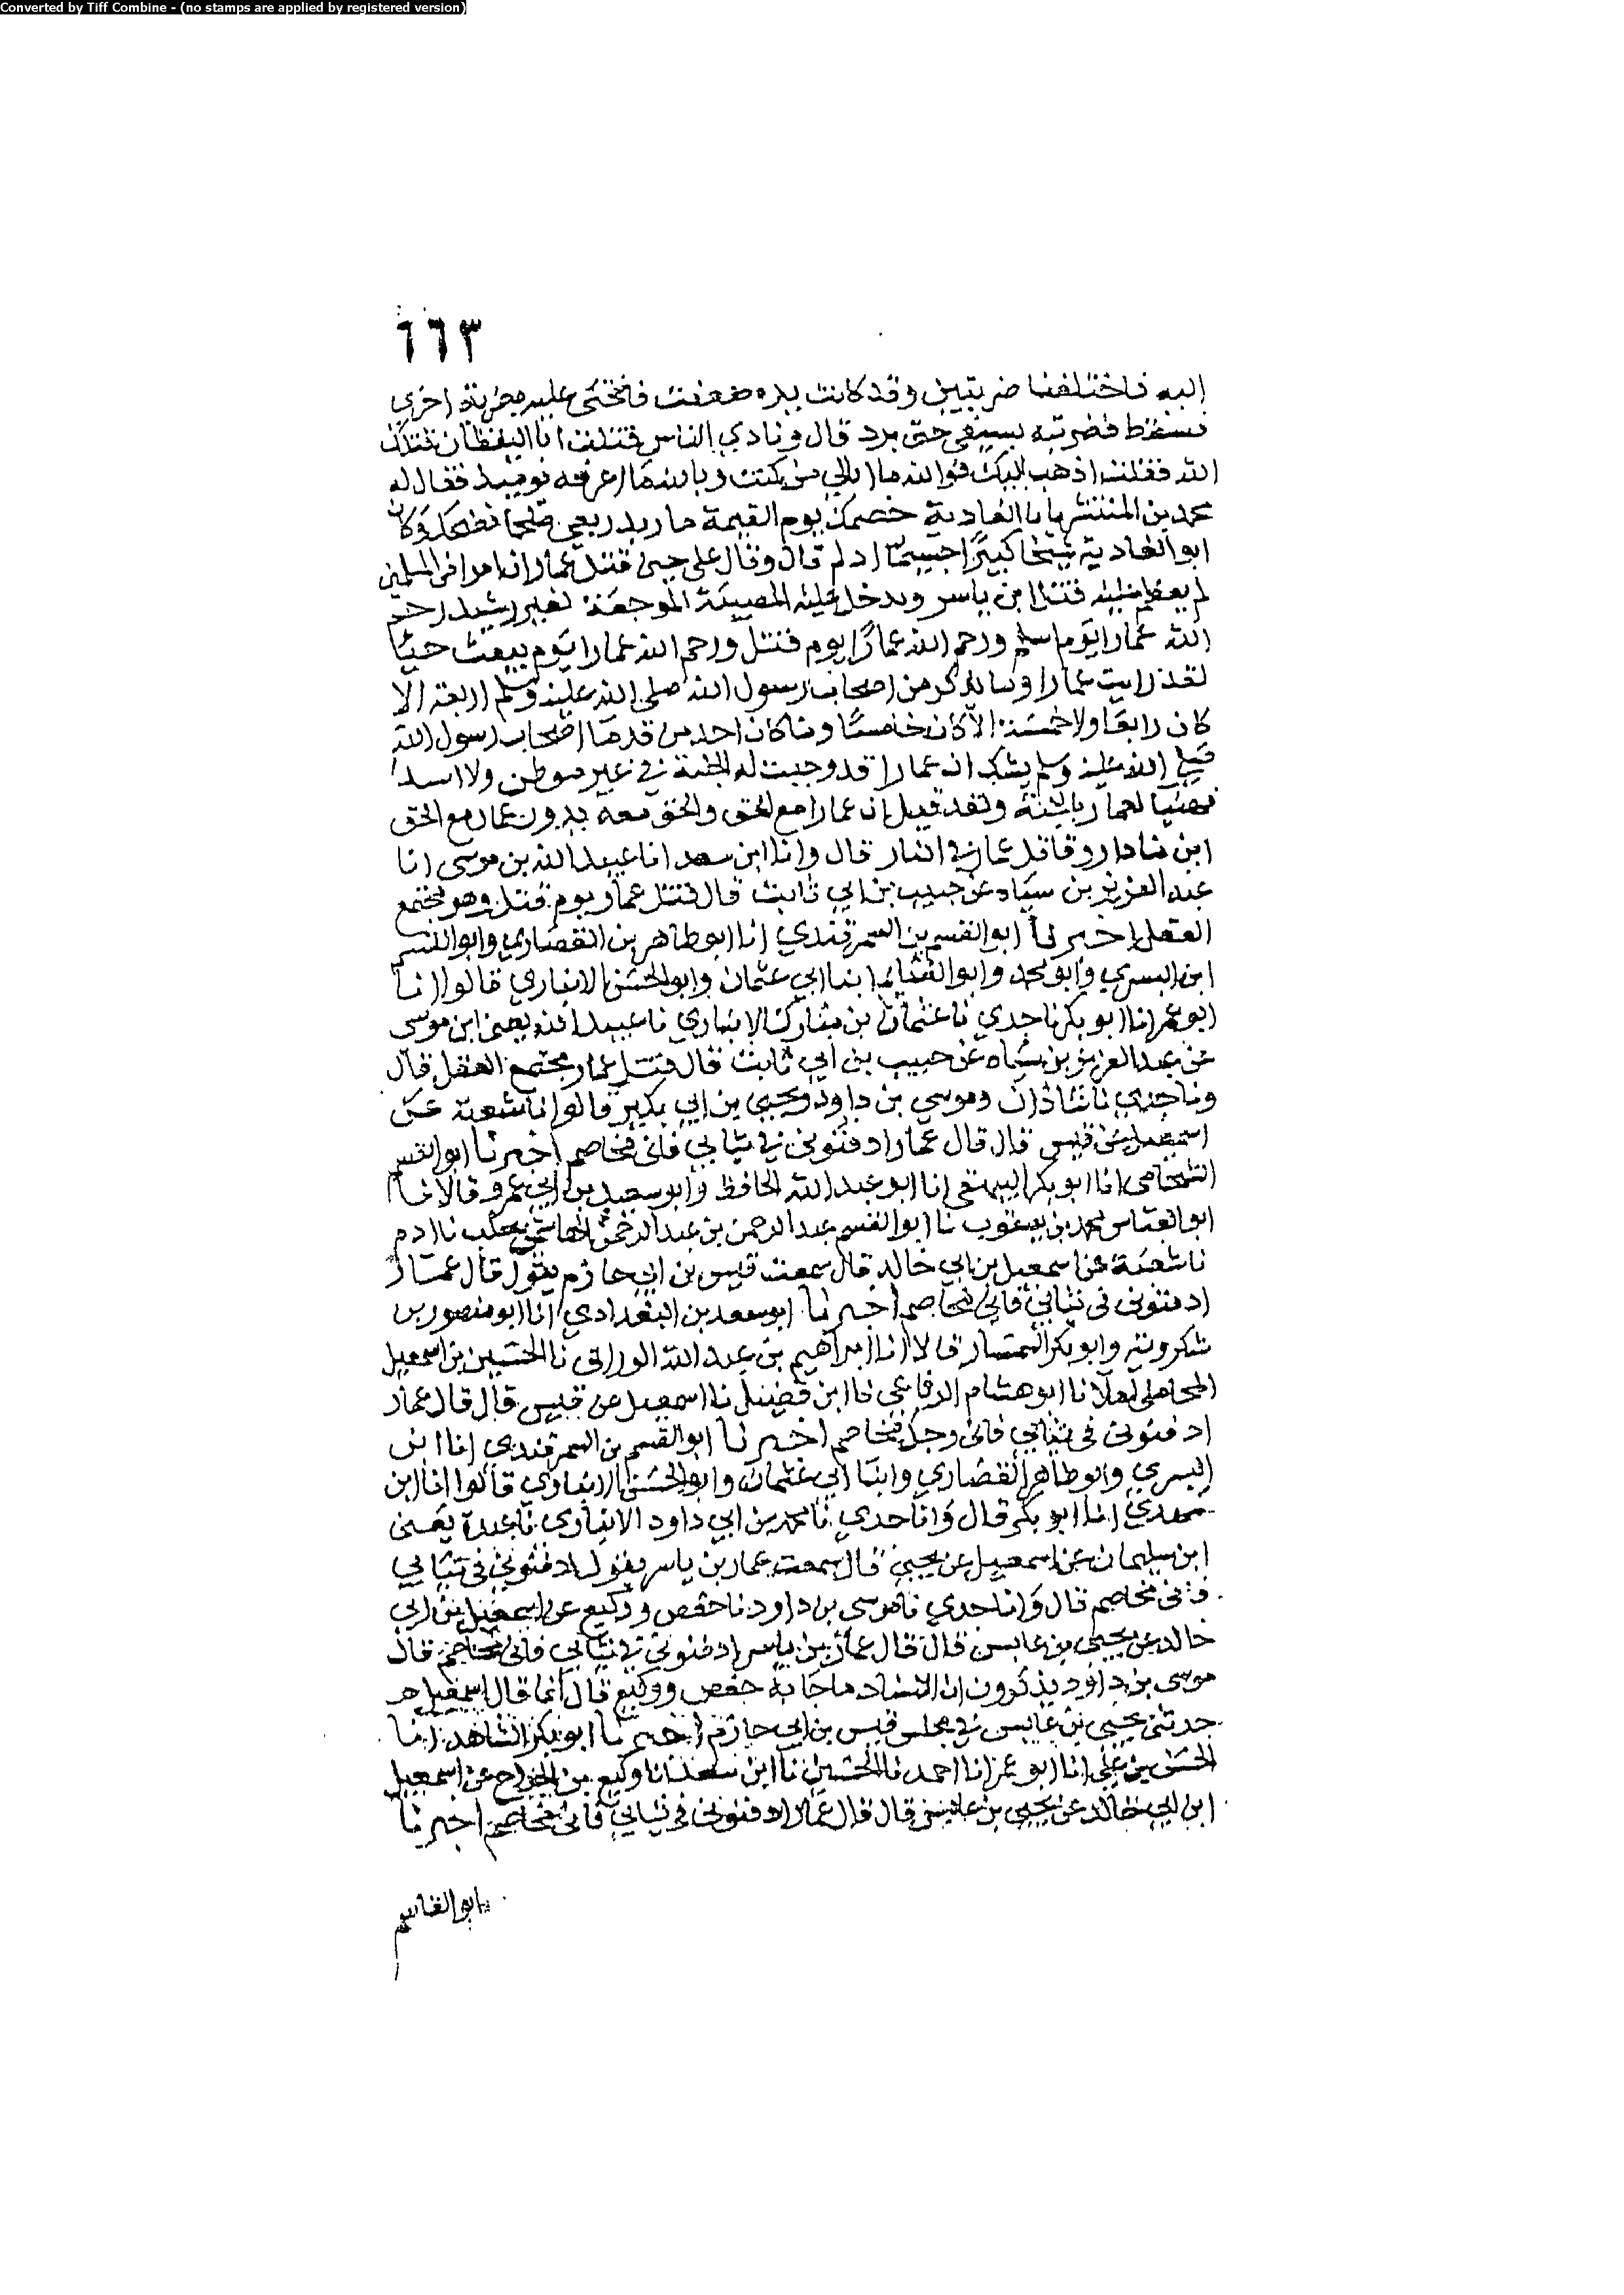 Converted by Tiff Combine - (no stamps are applied by registered version)
٦٦٣
اليه فاختلفنا ضربتين وقد كانت يده ضعفت فانتحى عليه بضربة اخرى
فسقط فضربته بسيفي حتى برد قال ونادى الناس قتلت ابا اليقظان قتلك
الله فقلت اذهب اليك فوالله ما ابالي من كنت وبالله ما اعرفه يوميذ فقال له
محمد بن المنتشر يا ابا الغادية خصمك يوم القيمة مازندر يعني ضخما فضحك وكان
ابو الغادية شيخا كبيرا جسيما ادلم قال وقال علي حين قتل عمار ان امرا من المسلمين
لم يعظم عليه قتل ابن ياسر ويدخل عليه المصيبة الموجعة لغير رشيد رحم
الله عمارا يوم اسلم ورحم الله عمارا يوم قتل ورحم الله عمارا يوم يبعث حيا
لقد رايت عمارا وما يذكر من اصحاب رسول الله صلى الله عليه وسلم اربعة الا
كان رابعا ولا خمسة الا كان خامسا وما كان احد من قدما اصحاب رسول الله
صلى الله عليه وسلم يشك ان عمارا قد وجبت له الجنة في غير موطن ولا اسد
فهنيا لعمار بالجنة ولقد قيل ان عمارا مع الحق والحق معه يدور عمار مع الحق
اين ما دار وقاتل عمار في النار قال وانا ابن سعد انا عبيد الله بن موسى انا
عبد العزيز بن سياه عن حبيب بن ابي ثابت قال قتل عمار يوم قتل وهو مجتمع
العقل اخبرنا ابو القسم بن السمرقندي انا ابو طاهر بن القصاري وابو القسم
ابن البسري وابو محمد وابو الغنايم ابنا ابي عثمان وابو الحسن الانباري قالوا انا
ابو عمر انا ابو بكر نا جدي نا عثمان بن مبارك الانباري نا عبيد الله يعنى ابن موسى
عن عبد العزيز بن سياه عن حبيب بن ابي ثابت قال قتل عمار مجتمع العقل قال
ونا جدي نا شاذان وموسى بن داود ويحيى بن ابي بكير قالوا نا شعبة عن
اسمعيل عن قيس قال قال عمار ادفنوني في ثيابي فاني مخاصم اخبرنا ابو القسم
الشحامي انا ابو بكر البيهقي انا ابو عبد الله الحافظ وابو سعيد بن ابي عمرو قالا نا
ابو العباس محمد بن يعقوب نا ابو القسم عبد الرحمن بن عبد الرحمن الهاشمي بحلب نا ادم
نا شعبة عن اسمعيل بن ابي خالد قال سمعت قيس بن ابي حازم يقول قال عمار
ادفنوني في ثيابي فاني مخاصم اخبرنا ابو سعد بن البغدادي انا ابو منصور بن
شكرويه وابو بكر السمسار قالا انا ابراهيم بن عبد الله الوراق نا الحسين بن اسمعيل
المحاملي املا نا ابو هشام الرفاعي نا ابن فضيل نا اسمعيل عن قيس قال قال عمار
ادفنوني في ثيابي فاني رجل مخاصم اخبرنا ابو القسم بن السمرقندي انا ابن
البسري وابو طاهر القصاري وابنا ابي عثمان وابو الحسن الانباري قالوا انا ابن
مهدي انا ابو بكر قال وانا جدي نا محمد بن ابي داود الانباري نا عبدة يعنى
ابن سليمان عن اسمعيل عن يحيى قال سمعت عمار بن ياسر يقول ادفنوني في ثيابي
فاني مخاصم قال وانا جدي نا موسى بن داود نا حفص ووكيع عن اسمعيل بن ابي
خالد عن يحيى بن عابس قال قال عمار بن ياسر ادفنوني في ثيابي فاني مخاصم قال
موسى بن داود يذكرون ان الاسناد ما جا به حفص ووكيع قال انما قال اسمعيل
حدثني يحيى بن عابس في مجلس قيس بن ابي حازم اخبرنا ابو بكر الشاهد انا
الحسن بن علي انا ابو عمر انا احمد نا الحسين نا ابن سعد انا وكيع بن الجراح عن اسمعيل
ابن ابي خالد عن يحيى بن عابس قال قال عمار ادفنوني في ثيابي فاني مخاصم اخبرنا
ابو القاسم